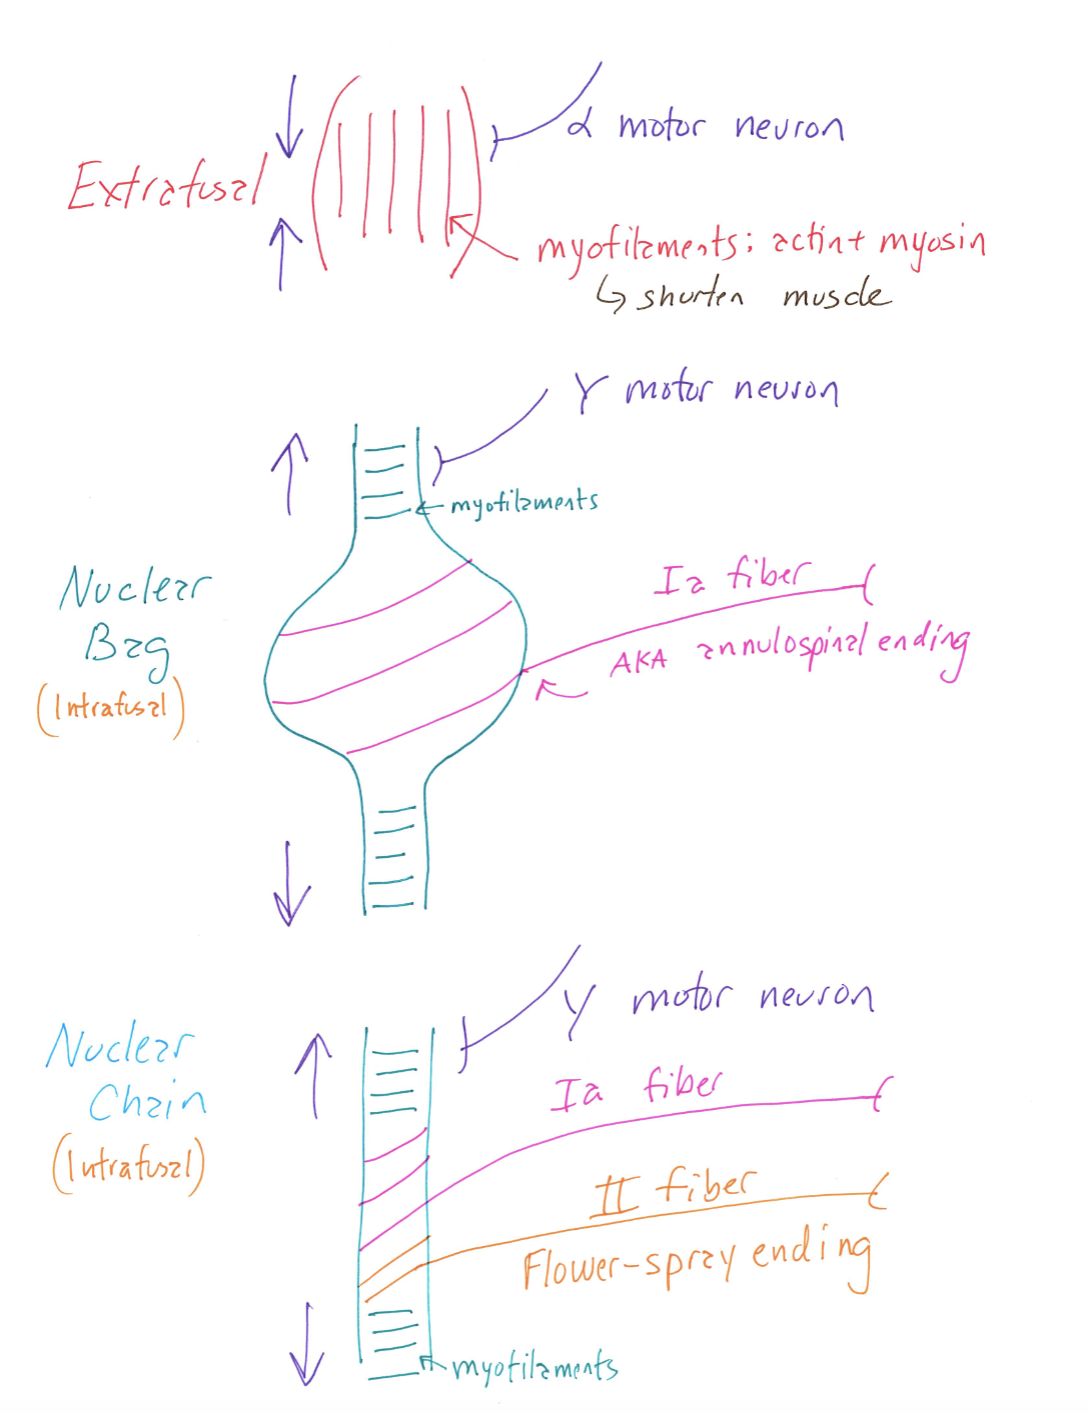 α motor neuron
Extrafusal
myofilaments; actin + myosin
↳ shorten muscle
γ motor neuron
myofilaments
Nuclear
Bag
(Intrafusal)
Ia fiber
AKA annulospinal ending
γ motor neuron
Nuclear
Chain
(Intrafusal)
Ia fiber
II fiber
Flower-spray ending
myofilaments